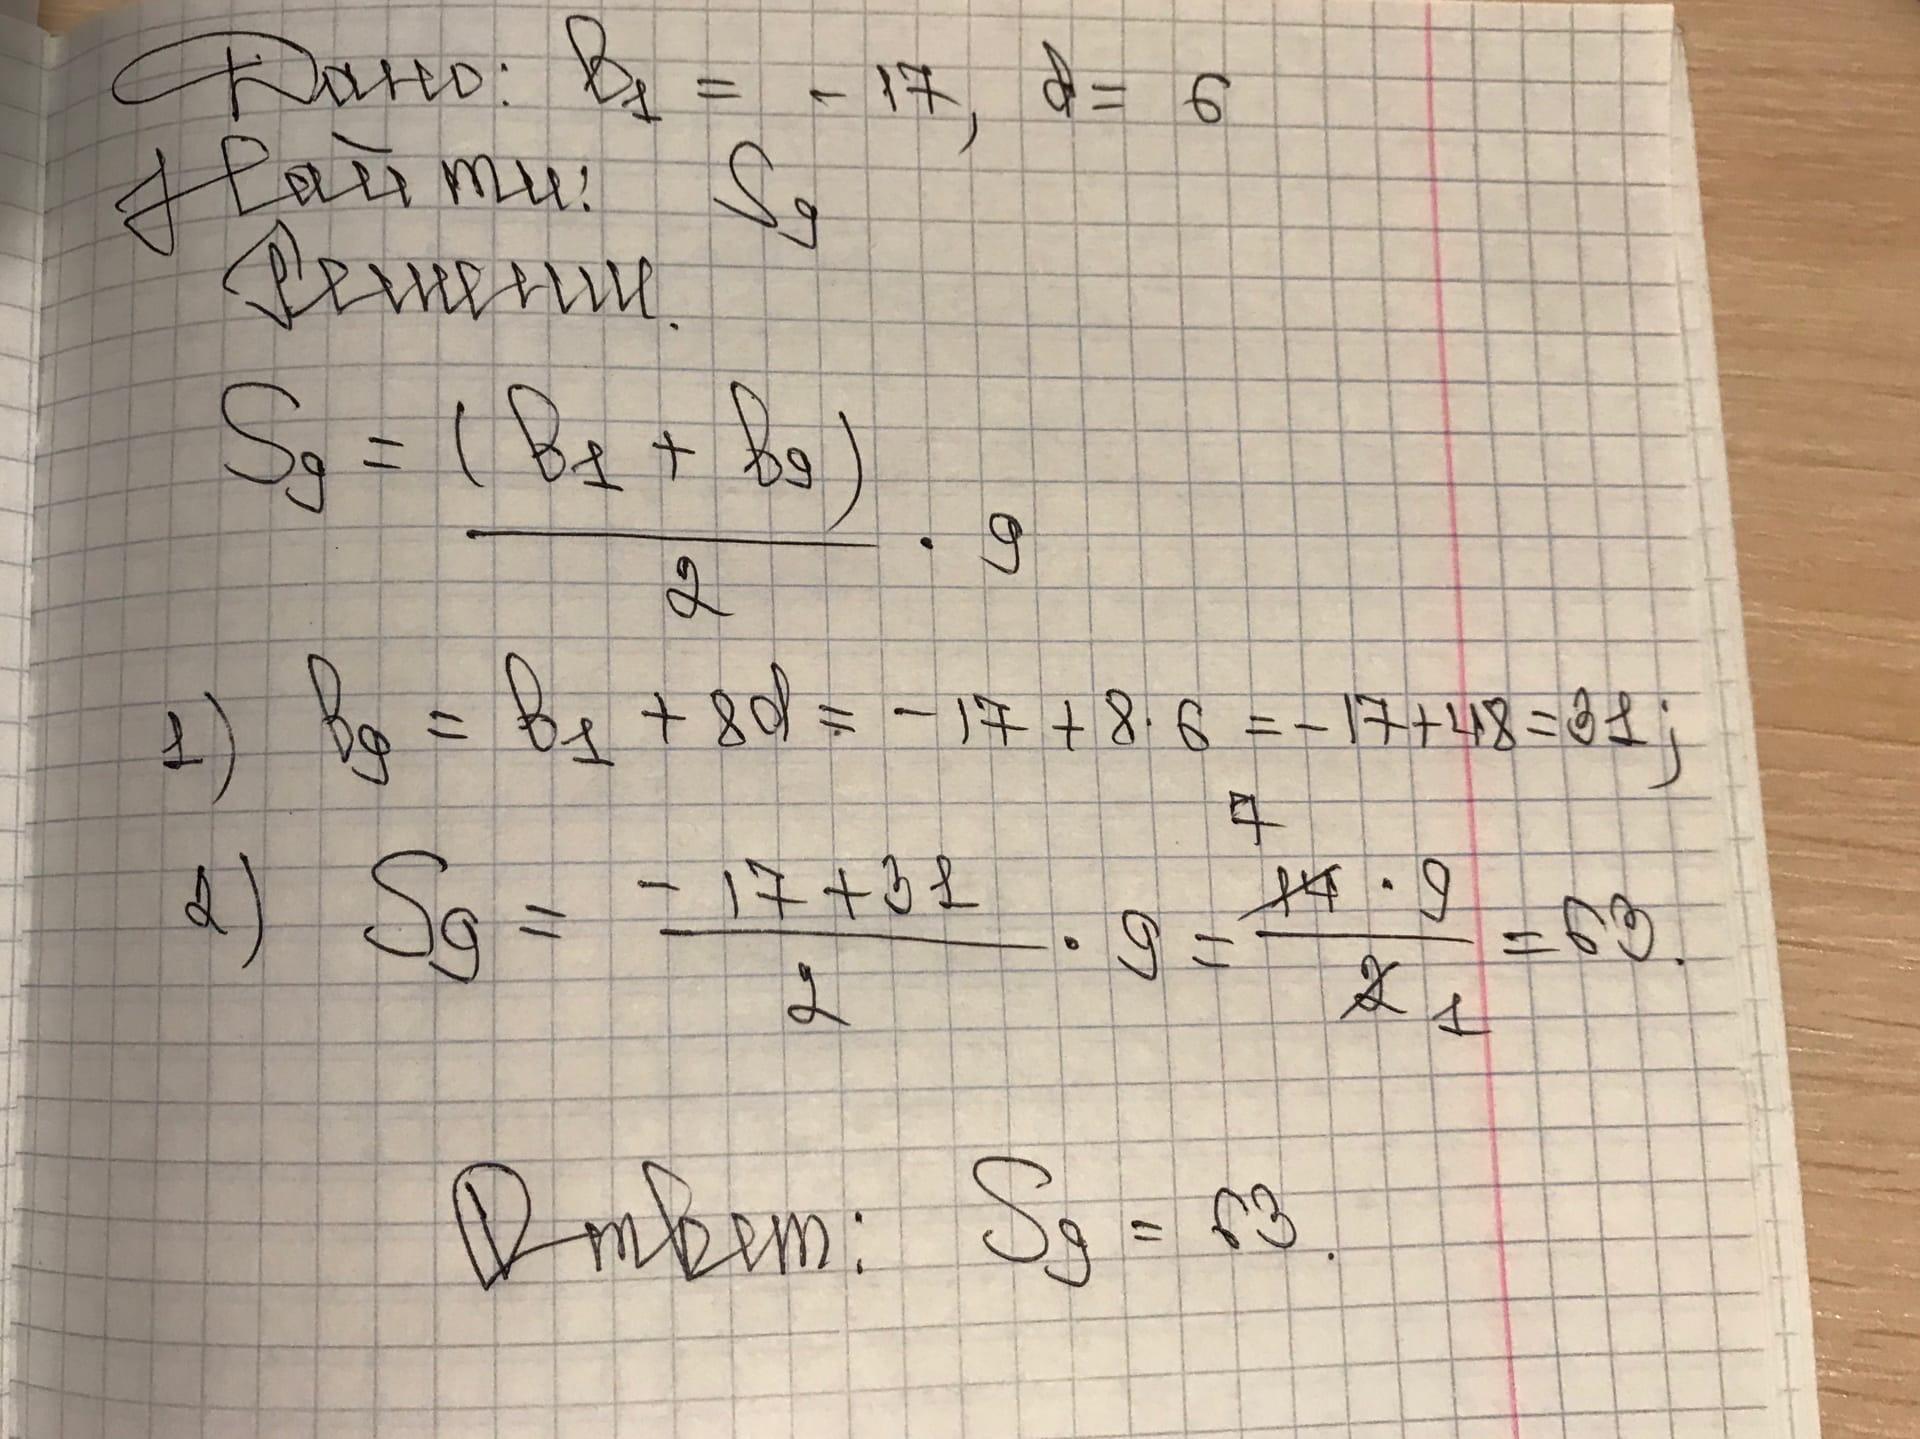 Дано: b₁ = -17, d = 6
Найти: S₉
Решение.
S₉ = (b₁ + b₉) / 2 · 9
1) b₉ = b₁ + 8d = -17 + 8·6 = -17+48=31;
2) S₉ = (-17+31) / 2 · 9 = (14 · 9) / 2 = 63. 7 1
Ответ: S₉ = 63.